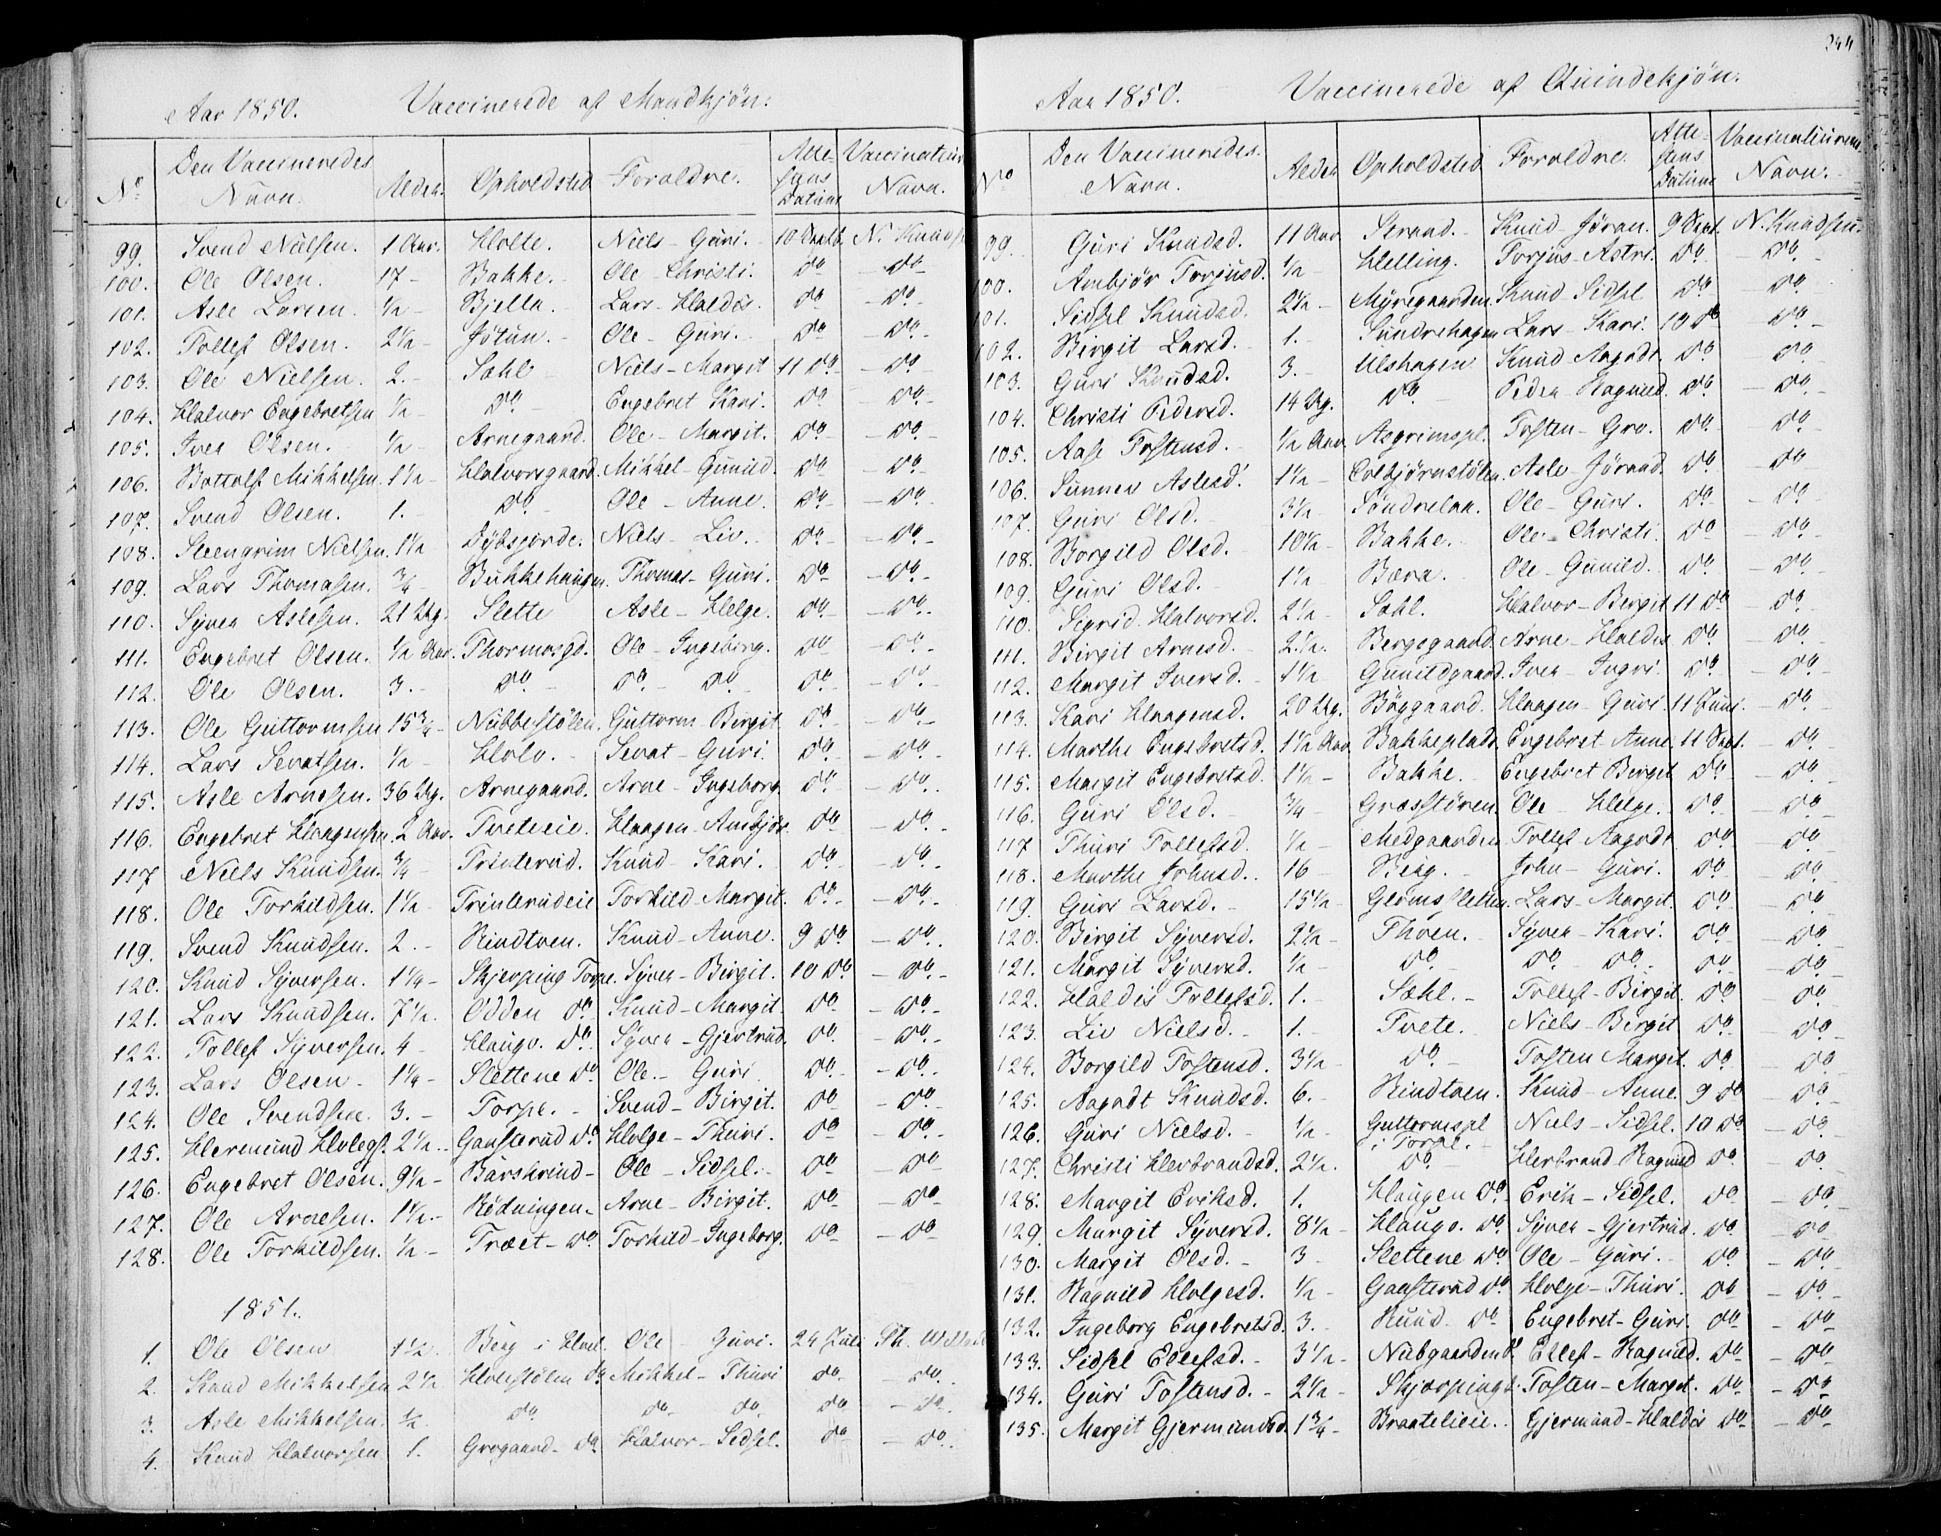 Aar 1850. Vaccinerede af Mandkjøn.
No Den Vaccineredes Navn. Alder. Opholdsted Forældre. Attestens Datum Vaccinateurens Navn.
99. Svend Nielsen. 1 Aar. Holte. Niels - Guri. 10 Septb. N. Knuds
100. Ole Olsen. 17 - Bakke. Ole - Christi. do - do -
101. Asle Larsen. ½ - Bjella. Lars - Haldis. do - do -
102. Tollef Olsen. 2½ - Jötun. - Ole - Guri. do - do
103. Ole Nielsen. 2. - Sahl - Niels - Margit 11 do - do
104. Halvor Engebretsen ½ - do - Engebret Kari. do - do -
105. Iver Olsen. ½ - Arnegaard. Ole - Margit. do - do -
106. Bottolf Mikkelsen. 1½ - Halvorsgaard. Mikkel - Gunild. do - do -
107. Svend Olsen. 1. - do - Ole - Anne. do - do -
108. Steengrim Nielsen. 1½ Dybsjorde. Niels - Liv. do - do -
109. Lars Thomasen. ¾ - Bukkehaugen. Thomas - Guri. do - do -
110. Syver Aslesen. 21 Ug. Slette Asle - Helge. do - do -
111. Engebret Olsen. ½ Aar. Thormosgd. Ole - Ingeborg. do - do -
112. Ole Olsen. 3. - do - do - do - do - do -
113. Ole Guttormsen 15¾ - Nubbestölen. Guttorm - Birgit. do - do -
114. Lars Sevatsen. ½ - Hove. - Sevat - Guri. do - do -
115. Asle Arnesen. 36 Ug. Arnegaard. Arne - Ingeborg. do - do -
116. Engebret Haagensen. 2 Aar. Tveteeie. Haagen - Ambjör do - do -
117 Niels Knudsen. ¾ - Trinterud. Knud - Kari. do - do -
118. Ole Torkildsen. 1½ - Trinterudeie Torkild - Margit. do - do -
119. Svend Knudsen. 2. - Rindtven. Knud - Anne. 9 do - do -
120. Knud Syversen. 1¼ - Skjerping Torpe. Syver - Birgit. 10 do - do -
121. Lars Knudsen. 7½. Odden do Knud - Margit. do - do -
122. Tollef Syversen. 4 - Haugo. do Syver - Gjertrud. do - do -
123. Lars Olsen - 1¼ - Slettene do Ole. - Guri do - do -
124. Ole Svendsen. 3. - Torpe. - Svend - Birgit. do - do -
125. Heremund Helges. 2½. - Gausterud do Helge - Thuri. do - do -
126. Engebret Olsen. 9½ - Bärskrind - Ole - Sidsel. do - do
127. Ole Arnesen. 1½. - Rödningen - Arne - Birgit. do - do
128. Ole Torkildsen. ½ - Træit - do Torkild - Ingeborg. do - do
1851.
1. Ole Olsen 1½. Berg i Hovl Ole - Guri. 24 Juli Th.
2. Knud Mikkelsen 2½ Hovestölen do Mikkel - Thuri do - do -
3. Asle Mikkelsen. ½. do do do do - do -
4. Knud Halvorsen 1. Grogaard - do. Halvor - Sidsel. do - do -
244
Aar 1850. Vaccinerede af Qvindekjøn.
No Den Vaccineredes Navn. Alder Opholdsted Forældre. Attestens Datum Vaccinateurens Navn.
99. Guri Knudsd. 11 Aar Strand. - Knud - Jöran. 9 Sept. N. Knudsen.
100. Ambjör Torjusd. ½ - Helling. Torjus - Astri. do - do -
101. Sidsel Knudsd. 2½ - Myregaarden. Knud - Sidsel do - do
102. Birgit Larsd. - 1. - Sundrehagen Lars - Kari. 10 do do -
103. Guri Knudsd. 3. - Ulshagen Knud Aagodt do - do
104. Christi Pedersd. 14 Ug. do - Peder - Ragnild. do - do
105. Aase Tostensd. - ½ Aar. Asgrimspl. Tosten - Gro. do - do
106. Sunnev Aslesd. 1½ - Colbjörnstölen. Asle - Jörand. do - do
107. Guri Olsd. - 3½ - Söndrelaa. Ole - Guri. do - do
108. Borgild Olsd. - 10½ - Bakke. - Ole - Christi. do - do
109. Guri Olsd. 1½ - Bæra. - Ole - Gunild. do - do -
110. Sigrid Halvorsd. 2½ - Sahl. Halvor - Bergit 11 do - do -
111. Birgit Arnesd. - 2½. Bergsgaard. Arne - Haldis do - do
112. Margit Iversd. - 1½ Gunildgaard. Iver - Ingri. do - do -
113. Kari Haagensd. 20 Ug. Böggaard. Haagen - Guri 11 Juni. - do
114. Marthe Engebretsd. 1½ Aar. Bakkeplads. Engebret - Anne. 11 Sept. - do -
115. Margit Engebretsd. 1½ - Bakke. - Engebret Birgit do - do -
116. Guri Olsd. - ¾ - Græsstören. Ole - Helge. do - do -
117 Thuri Tollefsd. ½ - Medgaarden Tollef Aagodt do - do
118. Marthe Johnsd. 16 - Berg. - John - Guri. do - do
119. Guri Larsd. - 15½ - Lars - Margit. do - do -
120. Birgit Syversd. 2½ - Thoen. - Syver - Kari. do - do
121. Margit Syversd. ½ - do - do - do - do - do -
122. Haldis Tollefsd. 1. - Sahl. - Tollef - Birgit. do do
123. Liv Nielsd. - 1. - Tvete. Niels - Birgit do - do
124. Borgild Tostensd. 3½ - do - Tosten Margit. do - do
125. Aagodt Knudsd. 6. - Rindtven. Knud - Anne. 9 do - do -
126. Guri Nielsd. - ½ - Guttormspl i Torpe. Niels - Sidsel. 10 do - do -
127. Christi Herbrandsd. 2½. - do - Herbrand Ragnild do do
128. Margit Eriksd. 1. Haugen do - Erik - Sidsel. do - do -
129. Margit Syversd. 8½ - Haugo. do Syver - Gjertrud. do - do
130. Margit Olsd. - 3 - Slettene do Ole - Guri. - do - do
131. Ragnild Helgesd. ½ - Gausterud do Helge - Thuri. do - do -
132. Ingeborg Engebretsd. 3. - Ruud - do Engebret - Guri. do - do -
133. Sidsel Ellefsd. - 3½ - Nubgaarden do Ellef - Ragnild. do - do -
134. Guri Tostensd. - 2½ - Skjærping do. Tosten - Margit. do - do
135. Margit Gjermundsd. 1¾ - Brateleie. - Gjermund - Haldis do - do